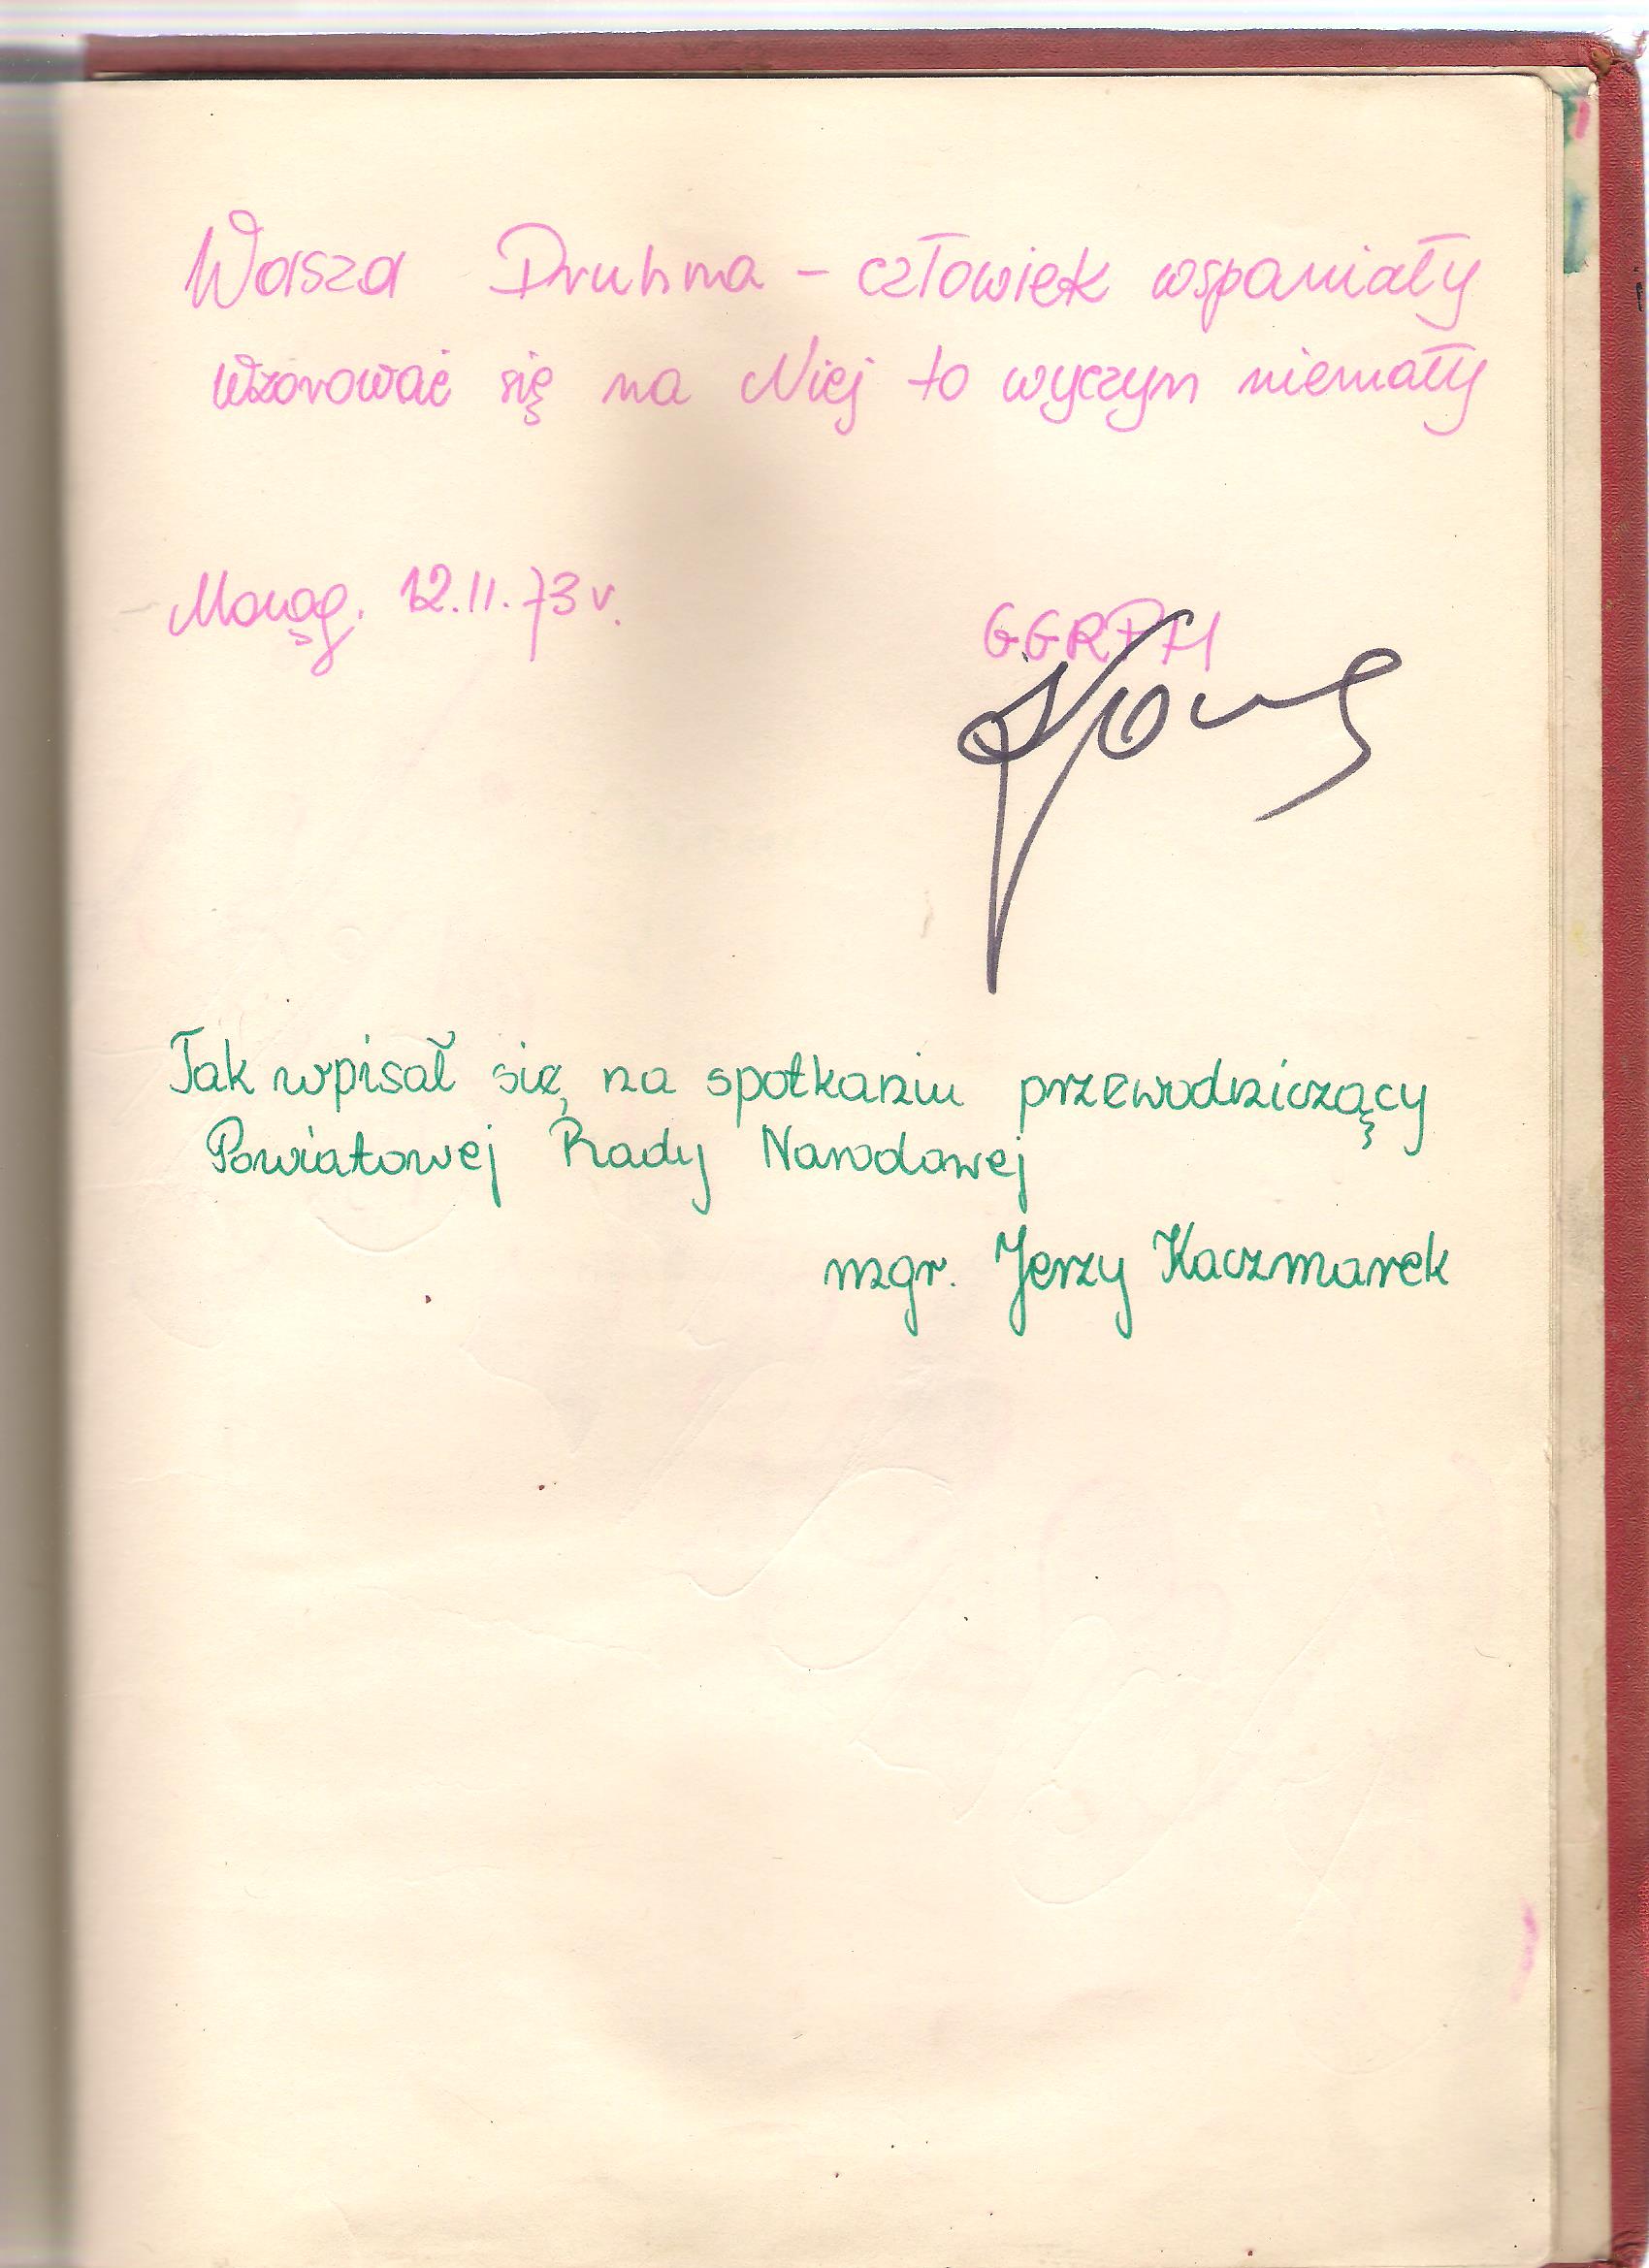 Wasza Druhna – człowiek wspaniały
wzorować się na Niej to wyczyn niemały
Morąg. 12.II.73 r.
Tak wpisał się na spotkaniu przewodniczący
Powiatowej Rady Narodowej
mgr. Jerzy Kaczmarek